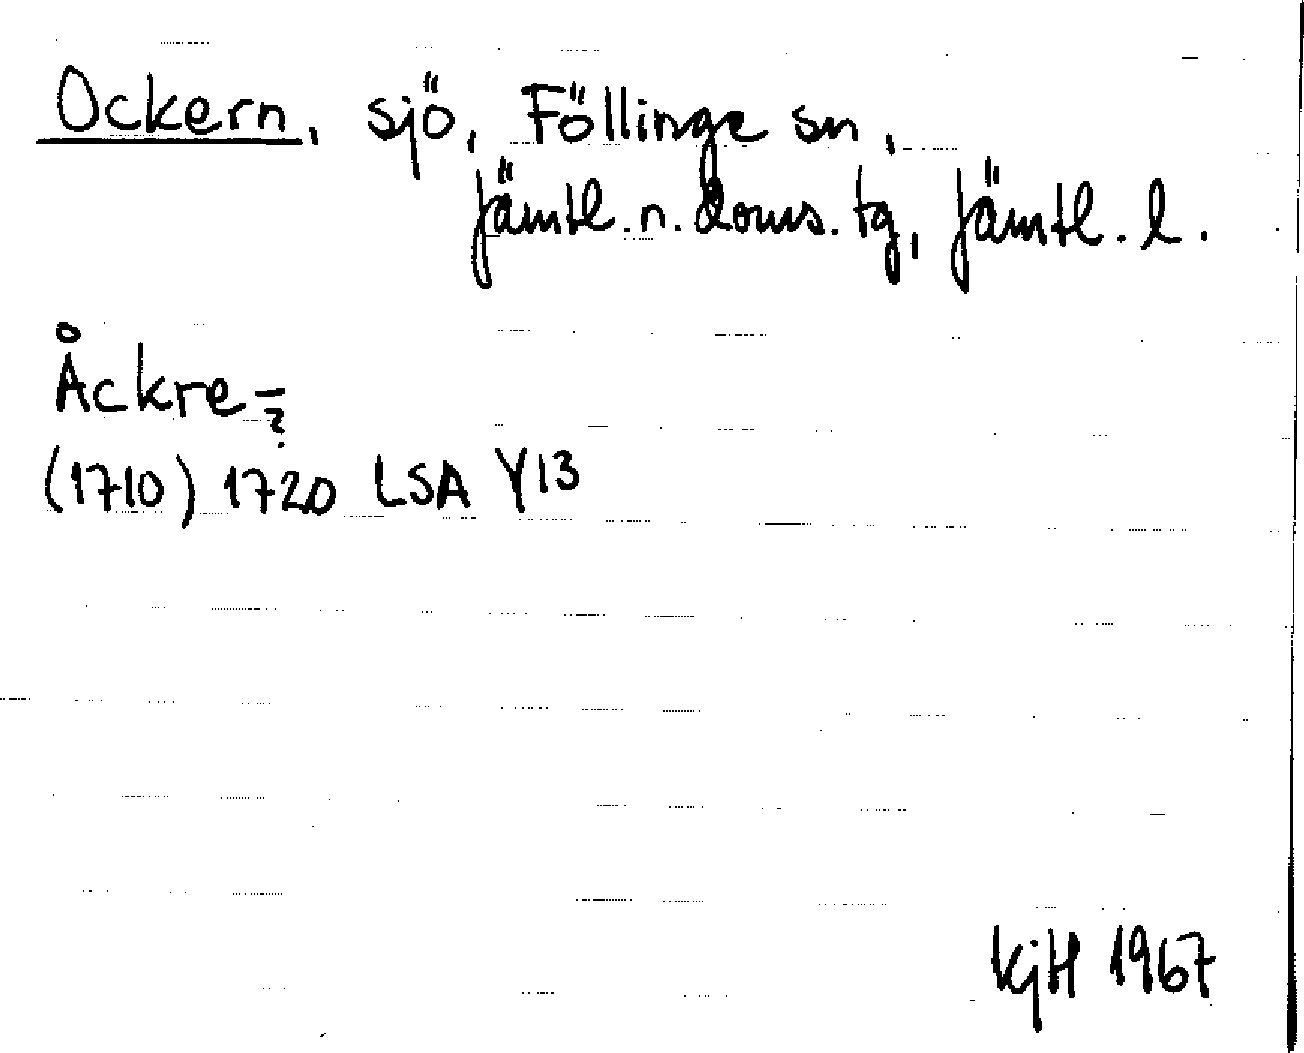 Ockern, sjö, Föllinge sn,
Jämtl. n. doms. tg, Jämtl. l.
Åckre-?
(1710) 1720 LSA Y13
KjH 1967